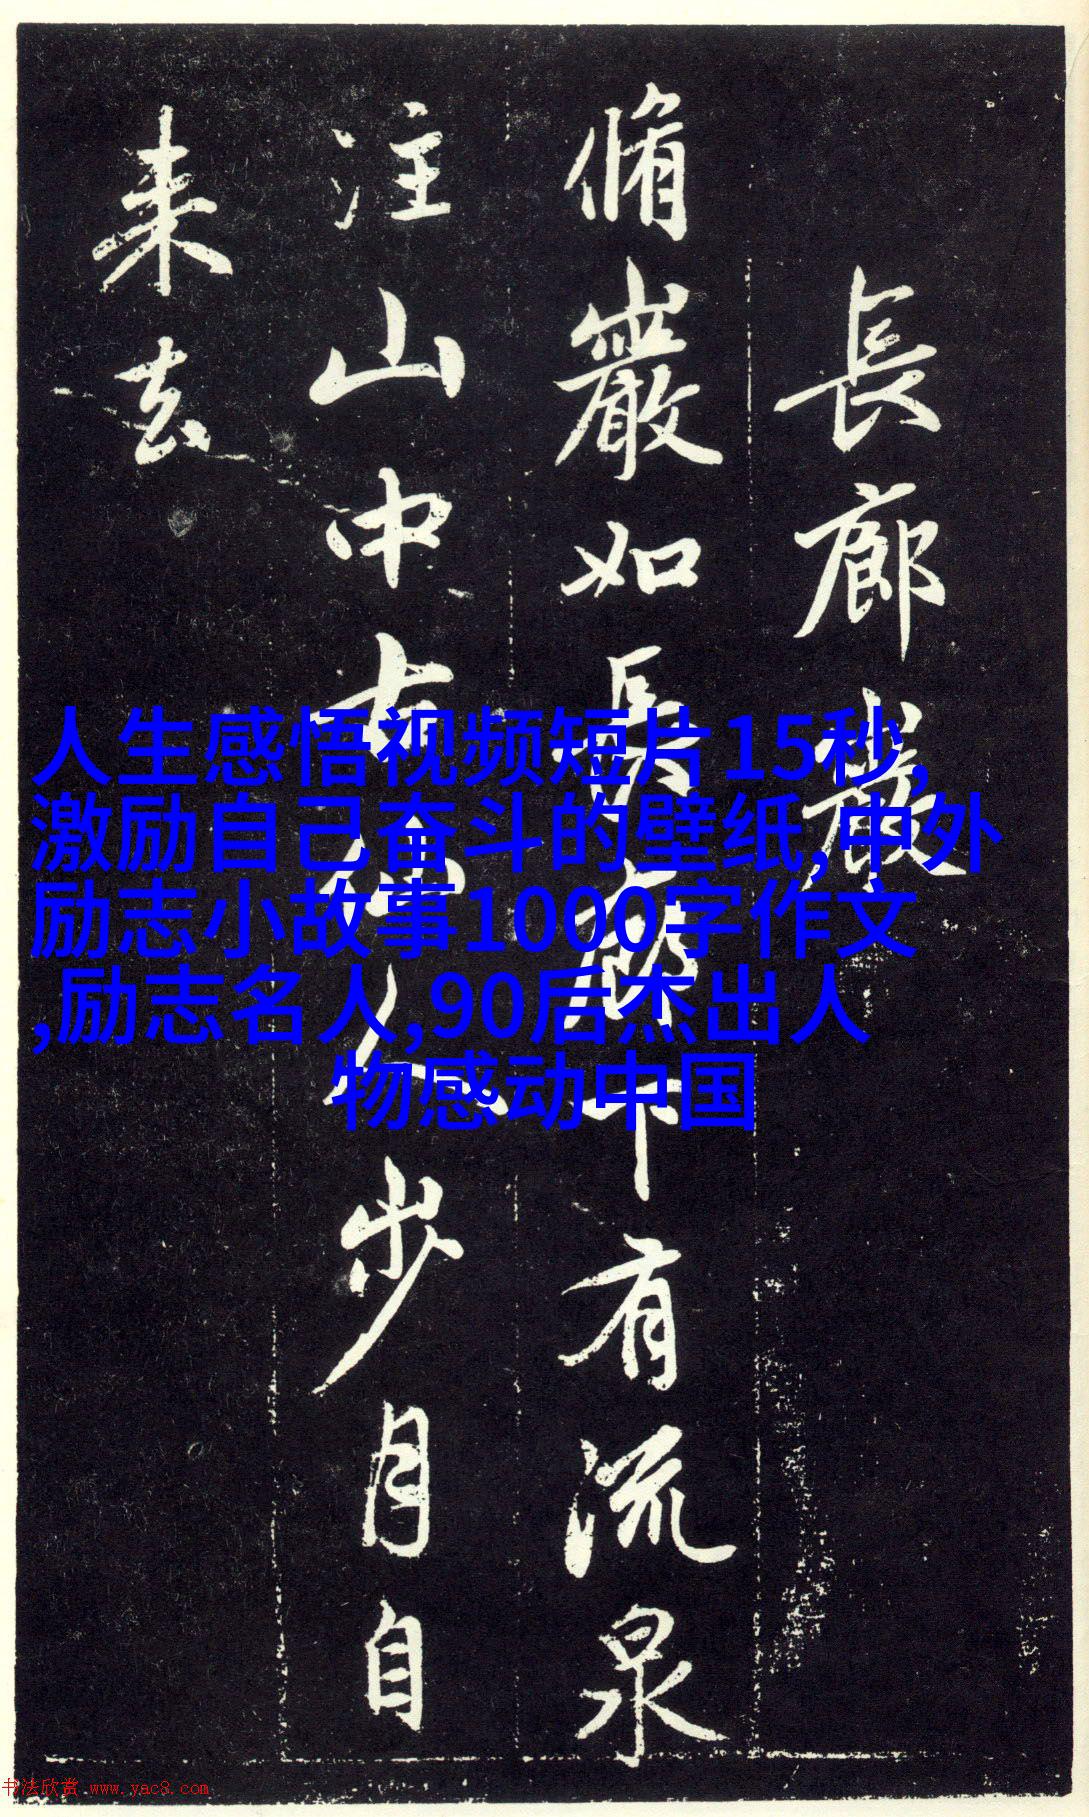 長廊巖
脩巖如長廊下有流泉
注山中古仙人步月自
来去
人生感悟视频短片15秒,
激励自己奋斗的壁纸,中外
励志小故事1000字作文
,励志名人,90后杰出人
物感动中国
书法欣赏 www.yac8.com